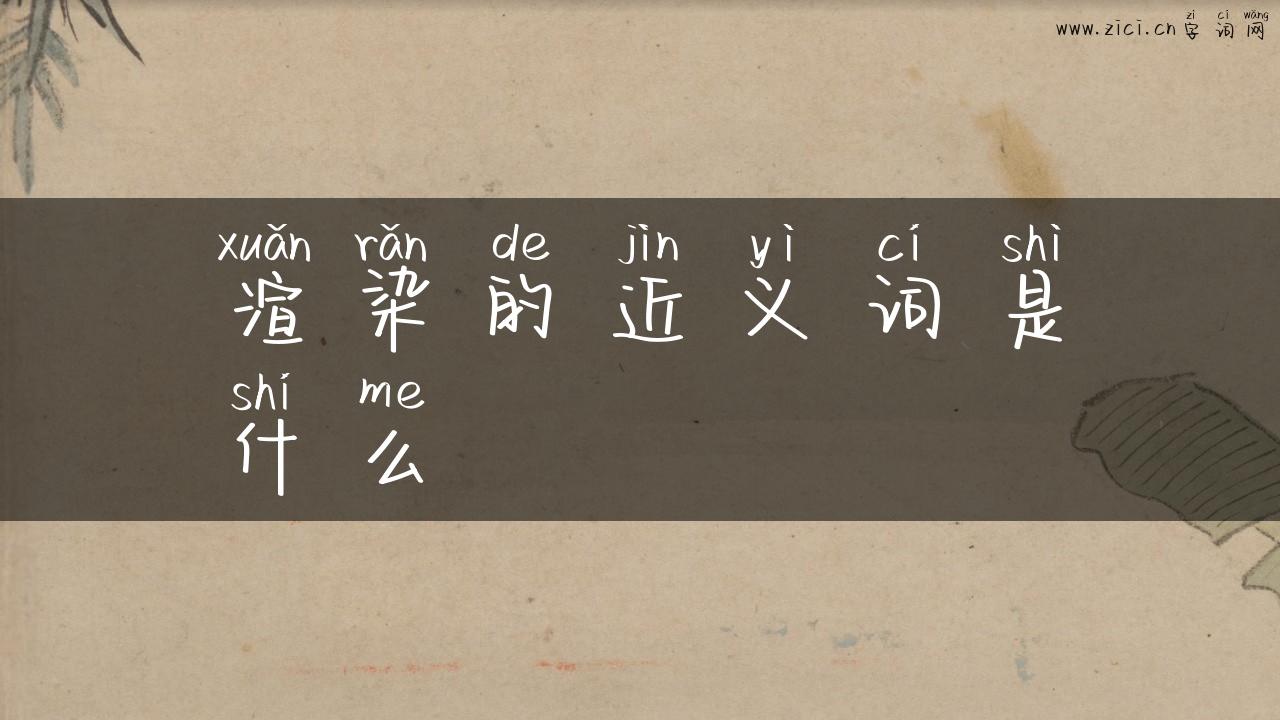 zì cí wǎng
www.zici.cn 字词网
xuǎn rǎn de jìn yì cí shì
渲染的近义词是
shí me
什么